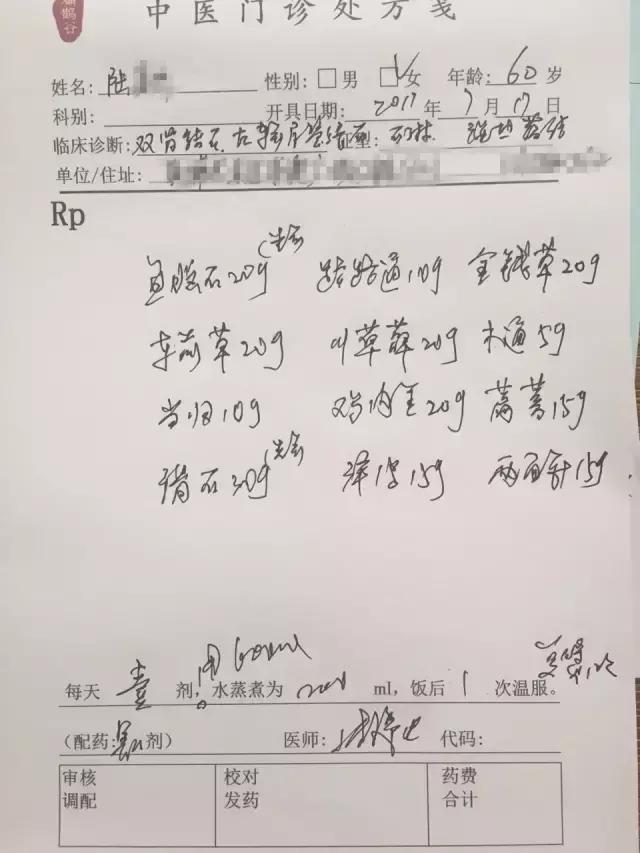 中医门诊处方笺
姓名: 陆 性别: 男 女 年龄: 60 岁
科别: 开具日期: 2017 年 7 月 17 日
临床诊断: 双肾结石 右输尿管结石 证型: 石淋 湿热蕴结
单位/住址:
Rp
鱼脑石20g(先煎 路路通10g 金钱草20g
车前草20g 川草薢20g 木通5g
当归10g 鸡内金20g 萹蓄15g
滑石30g(先煎 泽泻15g 两面针15g
每天 壹 剂, 水蒸煮为 ml, 饭后 1 次温服。
(配药: 剂) 医师: 代码:
审核 校对 药费
调配 发药 合计